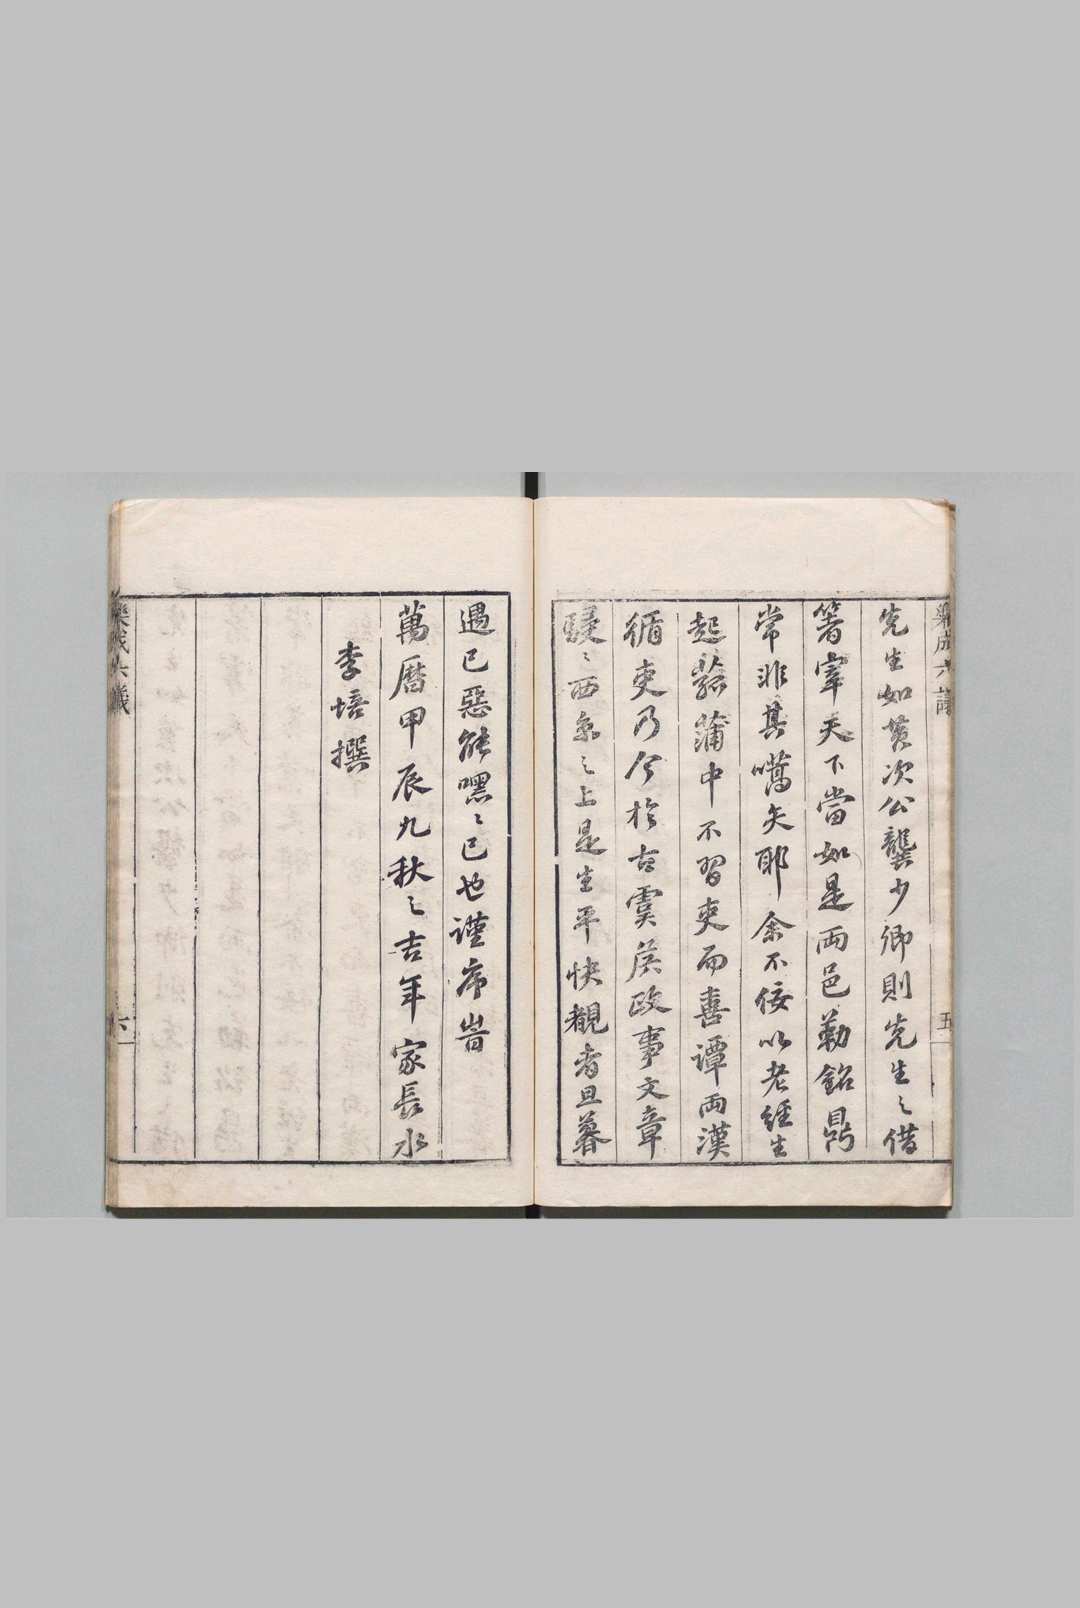 樂成六議
五
先生如黃次公龔少卿則先生之借
箸宰天下當如是両邑勒銘鼎
常非其嚆矢耶余不佞以老經生
起菰蒲中不習吏而喜譚両漢
循吏乃今於古虞侯政事文章
駸〻西京之上是生平快覩者旦暮
遇已惡能嘿〻已也謹序峕
萬曆甲辰九秋之吉年家長水
李培撰
樂成六議
六